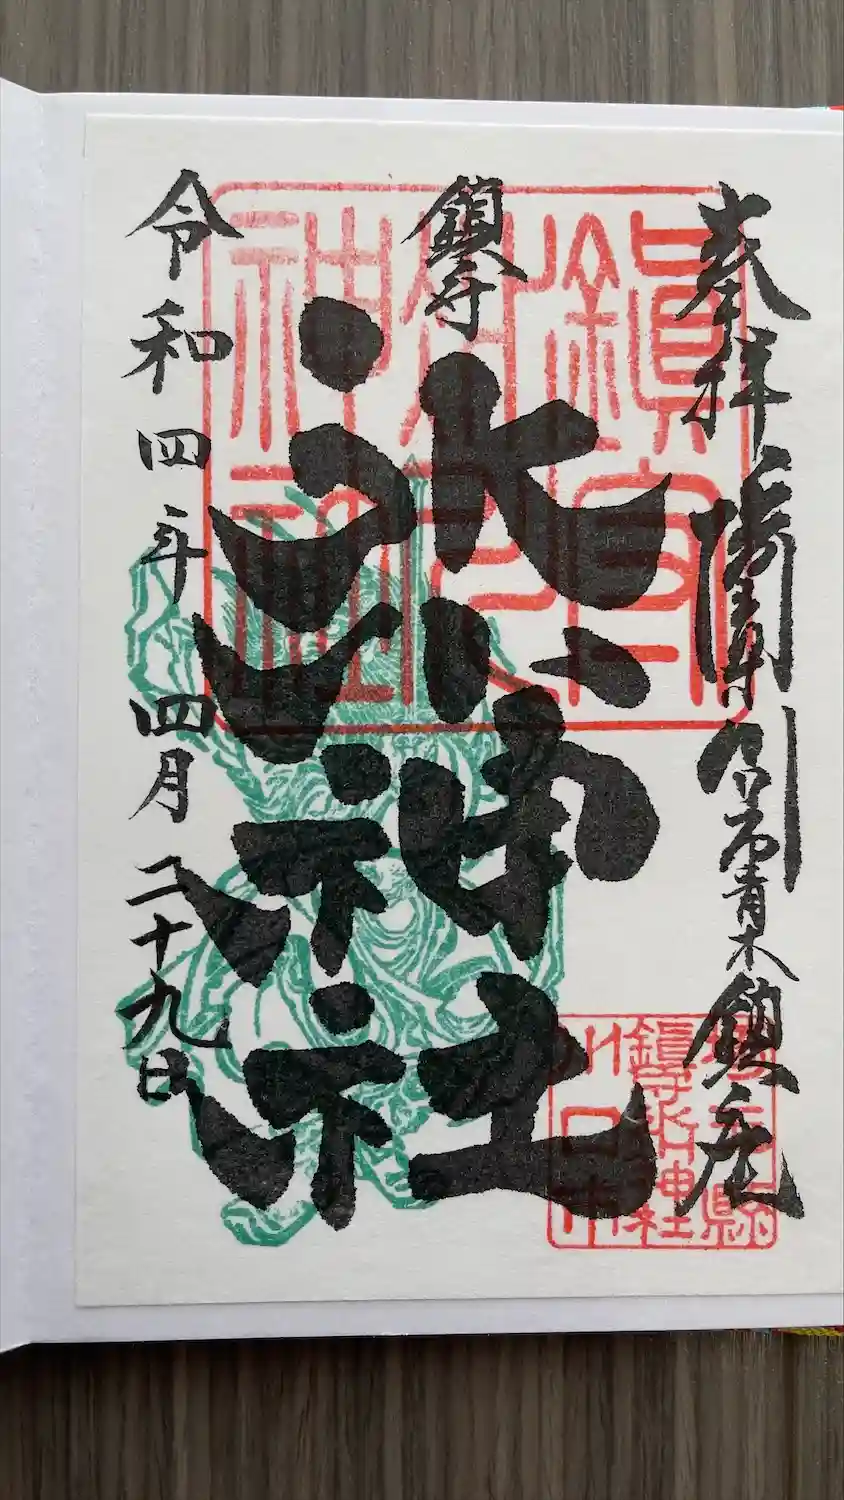 奉拝
川口市青木鎮座
鎮守
氷川神社
令和四年四月二十九日
鎮守
氷川
神社
埼玉縣
鎮守氷川神社
川口市